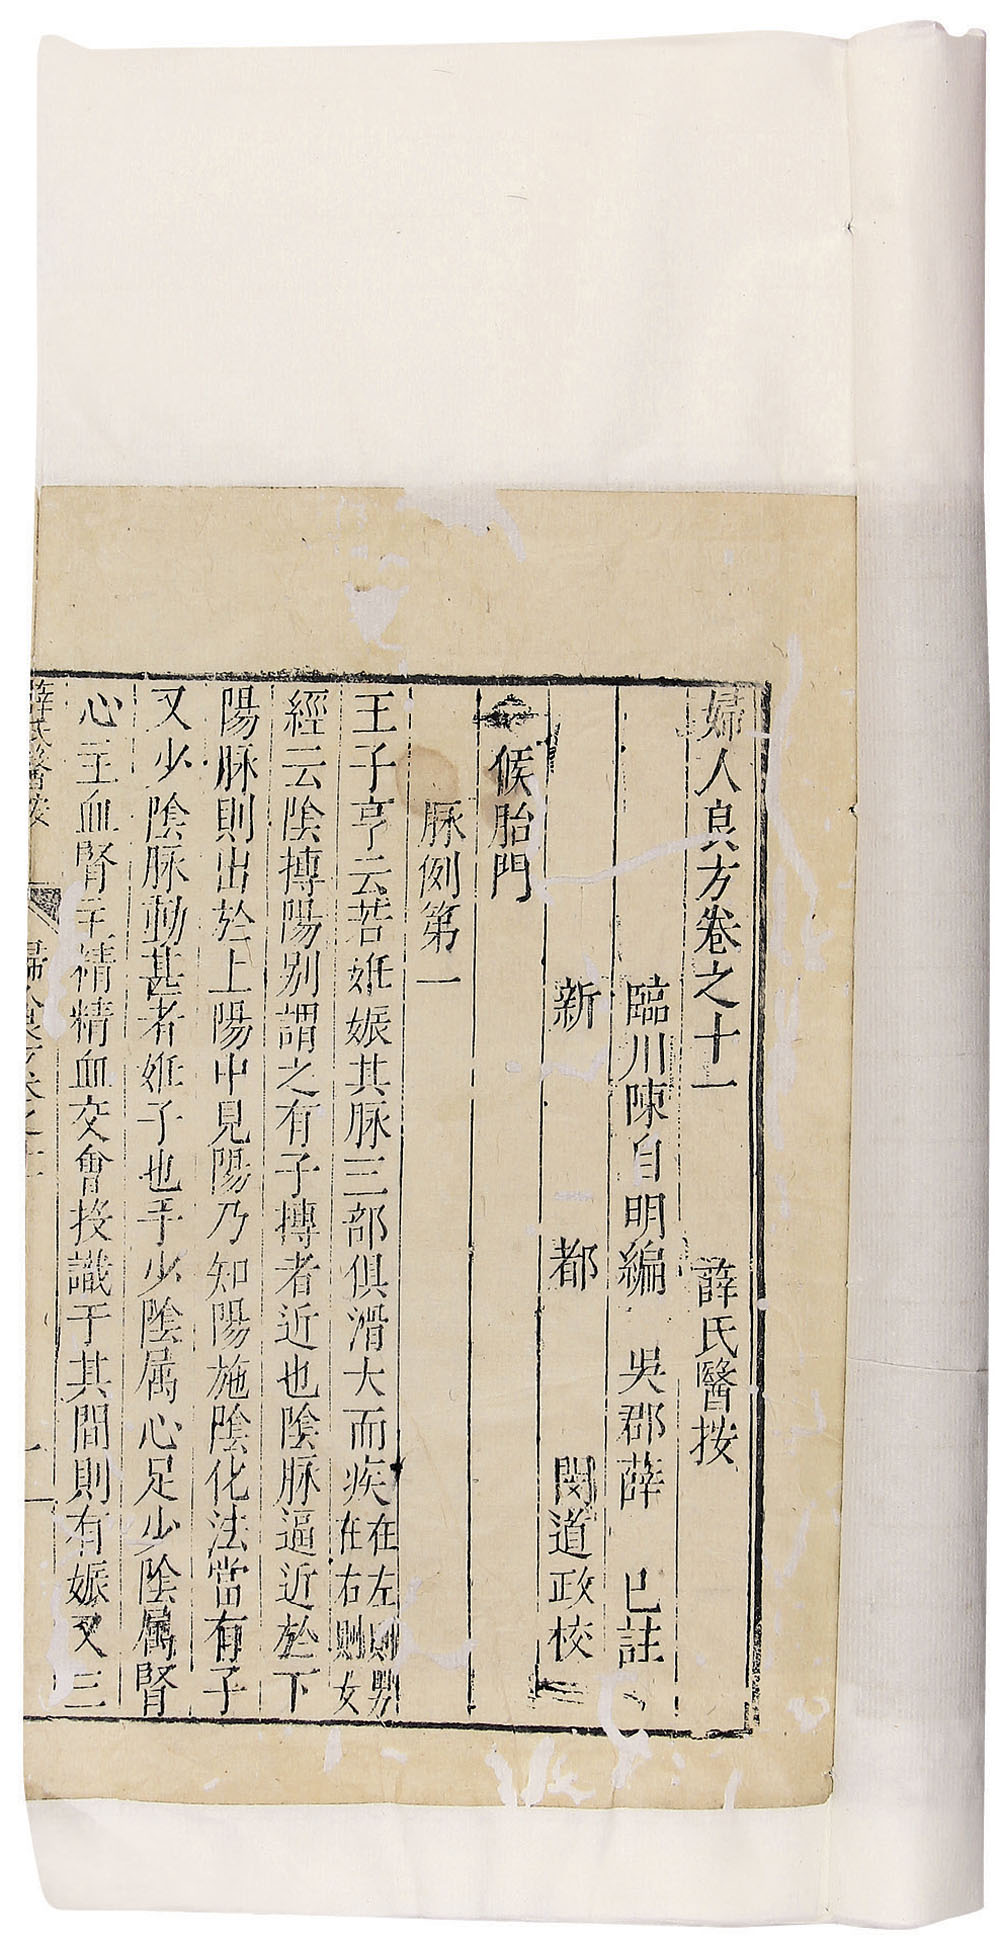 婦人良方卷之十一　薛氏醫按
臨川陳自明編　吳郡薛　已註
新　都　閔道政校
候胎門
脉例第一
王子亨云若姙娠其脉三部俱滑大而疾在左則男在右則女
經云陰搏陽别謂之有子搏者近也陰脉逼近於下
陽脉則出於上陽中見陽乃知陽施陰化法當有子
又少陰脉動甚者姙子也手少陰属心足少陰属腎
心主血腎主精精血交會投識于其間則有娠又三
薛氏醫按　婦人良方卷之十一　一